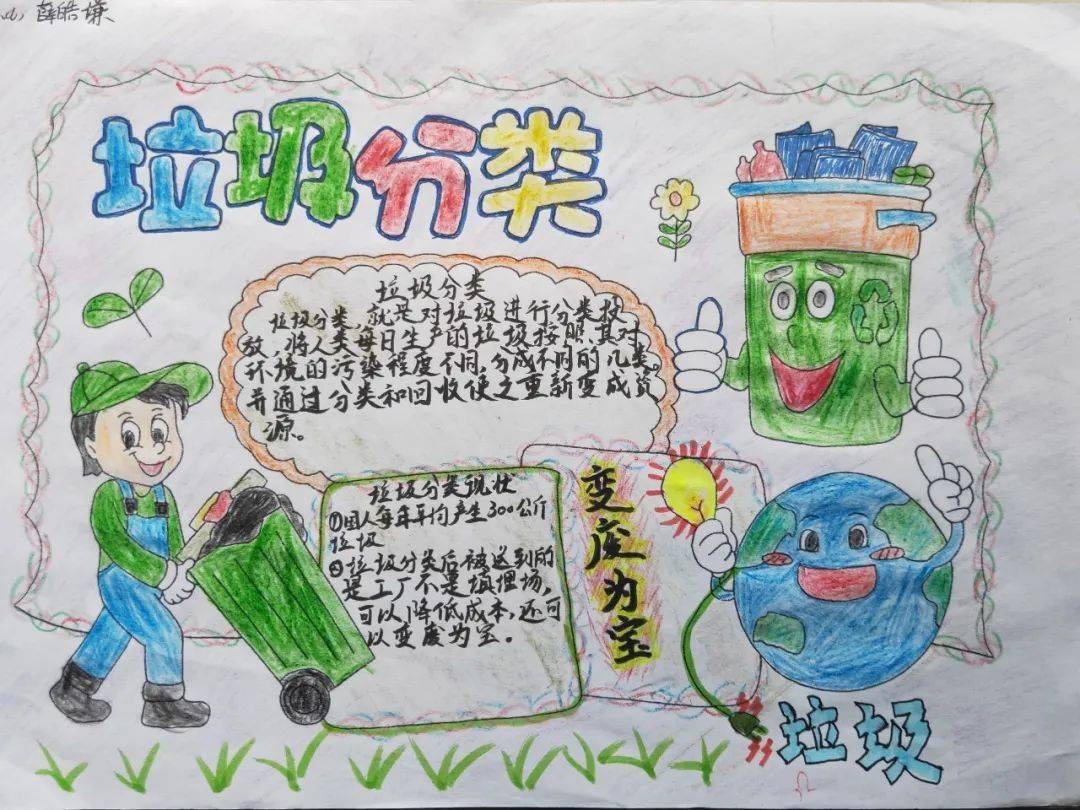 薛皓
垃圾分类
垃圾分类
垃圾分类,就是对垃圾进行分类投
放,将人类每日生产的垃圾按照其对
环境的污染程度不同,分成不同的几类。
并通过分类和回收使之重新变成资
源。
垃圾分类现状
①国人每年平均产生300公斤
垃圾
②垃圾分类后被送到的
是工厂不是填埋场,
可以降低成本,还可
以变废为宝。
变废为宝
垃圾